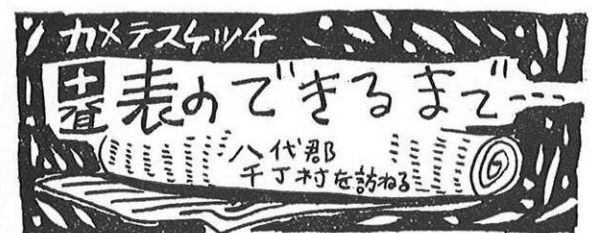 カメラスケッチ
畳表のできるまで…
八代郡
千丁村を訪ねる